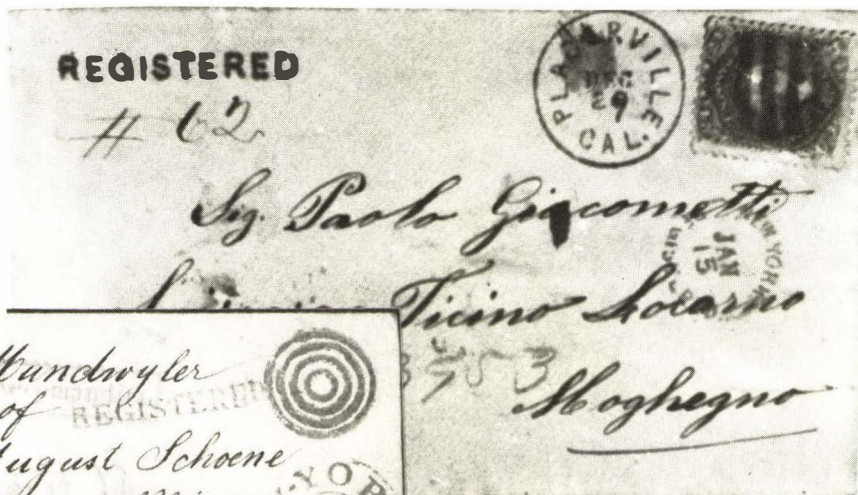 REGISTERED
# 62
PLACERVILLE
DEC
29
CAL.
Sig. Paolo Giacometti
NEW YORK
JAN
15
Ticino Locarno
3753
Moghegno
Mundwyler
of
REGISTERED
August Schoene